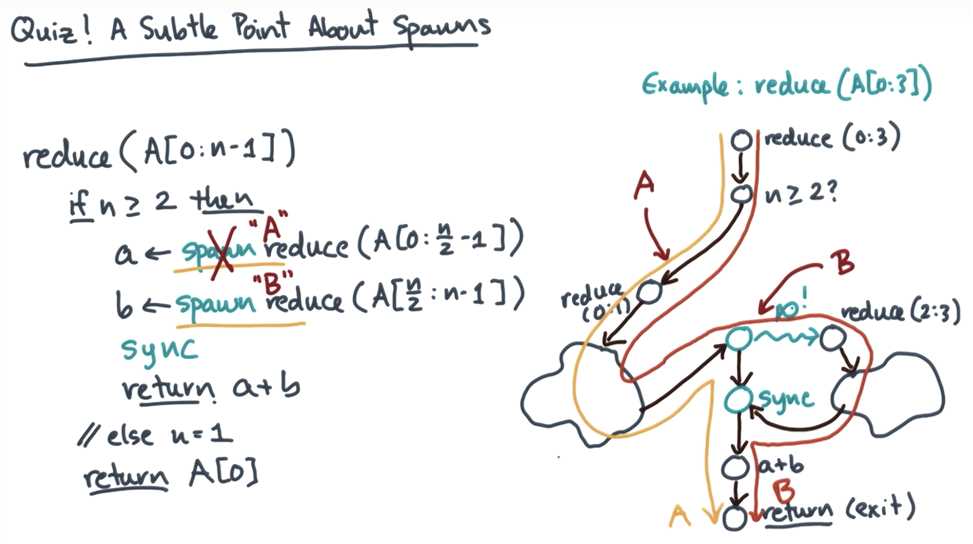 Quiz! A Subtle Point About Spawns
Example: reduce (A[0:3])
reduce (A[0:n-1])
if n ≥ 2 then
a ← spawn "A" reduce (A[0:n/2-1])
b ← spawn "B" reduce (A[n/2:n-1])
sync
return a+b
// else n=1
return A[0]
reduce (0:3)
n ≥ 2?
A
B
reduce
(0:1)
reduce (2:3)
sync
a+b
B
A
return (exit)